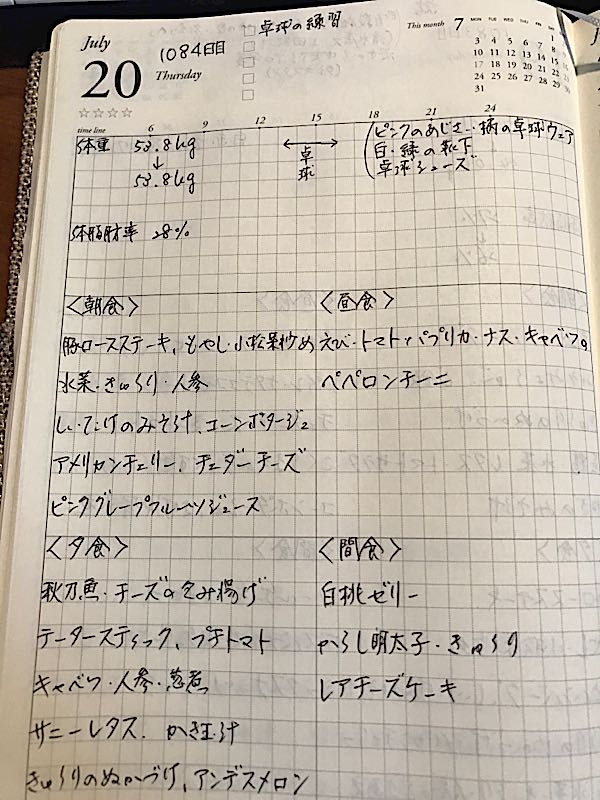 July
20
1084日目
Thursday
☆☆☆☆
卓球の練習
This month 7
MON TUE WED THU FRI SAT
1
3 4 5 6 7 8
10 11 12 13 14 15
17 18 19 20 21 22
24 25 26 27 28 29
31
time line 6 9 12 15 18 21 24
体重 53.8kg
↓
53.8kg
卓球
ピンクのあじさい柄の卓球ウェア
白・緑の靴下
卓球シューズ
体脂肪率 28%
<朝食>
豚ロースステーキ、もやし・小松菜炒め
水菜・きゅうり・人参
しいたけのみそ汁、コーンポタージュ
アメリカンチェリー、チェダーチーズ
ピンクグレープフルーツジュース
<昼食>
えび・トマト・パプリカ・ナス・キャベツの
ペペロンチーニ
<夕食>
秋刀魚・チーズの包み揚げ
テータースティック、プチトマト
キャベツ・人参・
サニーレタス、かき玉汁
きゅうりのぬかづけ、アンデスメロン
<間食>
白桃ゼリー
からし明太子・きゅうり
レアチーズケーキ